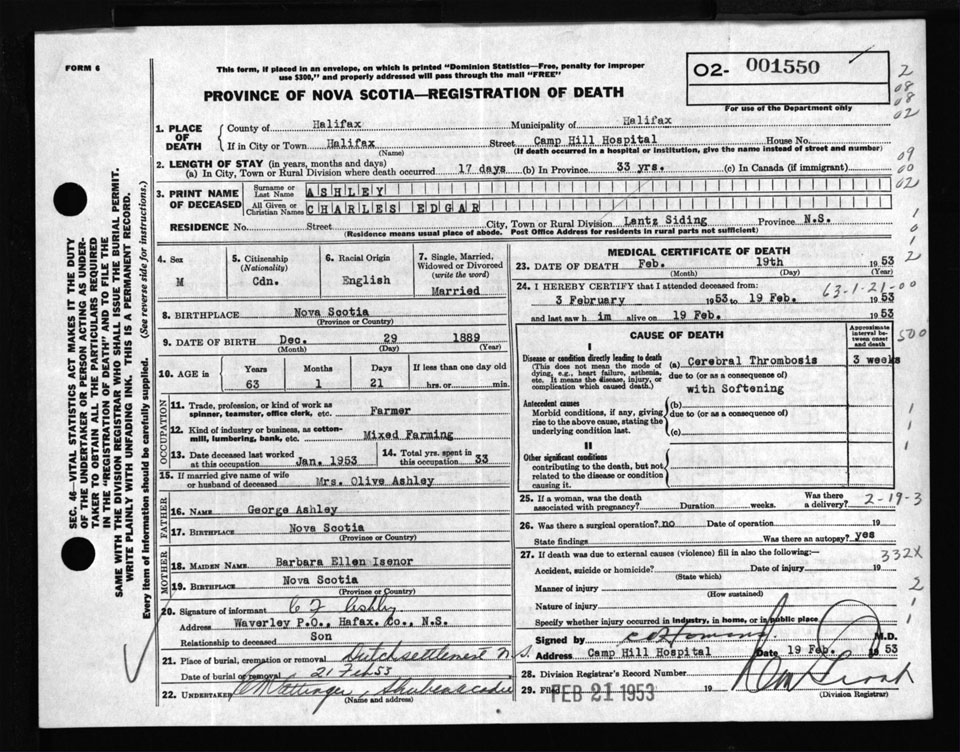 FORM 6
This form, if placed in an envelope, on which is printed "Dominion Statistics—Free, penalty for improper
use $300," and properly addressed will pass through the mail "FREE"
O2- 001550
For use of the Department only
PROVINCE OF NOVA SCOTIA—REGISTRATION OF DEATH
2
08
08
02
09
00
02
1. PLACE OF DEATH
County of Halifax Municipality of Halifax
If in City or Town Halifax Street Camp Hill Hospital House No.
(Name) (If death occurred in a hospital or institution, give the name instead of street and number)
2. LENGTH OF STAY (in years, months and days)
(a) In City, Town or Rural Division where death occurred 17 days (b) In Province 33 yrs. (c) In Canada (if immigrant)
3. PRINT NAME OF DECEASED
Surname or Last Name ASHLEY
All Given or Christian Names CHARLES EDGAR
RESIDENCE No. Street City, Town or Rural Division Lantz Siding Province N.S.
(Residence means usual place of abode. Post Office Address for residents in rural parts not sufficient)
4. Sex
M
5. Citizenship
(Nationality)
Cdn.
6. Racial Origin
English
7. Single, Married,
Widowed or Divorced
(write the word)
Married
8. BIRTHPLACE Nova Scotia
(Province or Country)
9. DATE OF BIRTH Dec. 29 1889
(Month) (Day) (Year)
10. AGE in
Years Months Days If less than one day old
63 1 21 hrs. or min.
OCCUPATION
11. Trade, profession, or kind of work as
spinner, teamster, office clerk, etc. Farmer
12. Kind of industry or business, as cotton-
mill, lumbering, bank, etc. Mixed Farming
13. Date deceased last worked
at this occupation Jan. 1953
14. Total yrs. spent in
this occupation 33
15. If married give name of wife
or husband of deceased Mrs. Olive Ashley
FATHER
16. NAME George Ashley
17. BIRTHPLACE Nova Scotia
(Province or Country)
MOTHER
18. MAIDEN NAME Barbara Ellen Isenor
19. BIRTHPLACE Nova Scotia
(Province or Country)
20. Signature of informant
Address Waverley P.O., Hafax. Co., N.S.
Relationship to deceased Son
21. Place of burial, cremation or removal Dutch settlement N.S.
Date of burial or removal 21 Feb 53
22. UNDERTAKER
(Name and address)
MEDICAL CERTIFICATE OF DEATH
23. DATE OF DEATH Feb. 19th 1953
(Month) (Day) (Year)
24. I HEREBY CERTIFY that I attended deceased from:
63-1-21-00
3 February 1953 to 19 Feb. 1953
and last saw h im alive on 19 Feb. 1953
CAUSE OF DEATH
Approximate
interval be-
tween onset
and death
500
I
Disease or condition directly leading to death
(This does not mean the mode of
dying, e.g., heart failure, asthenia,
etc. It means the disease, injury, or
complication which caused death.)
(a) Cerebral Thrombosis 3 weeks
due to (or as a consequence of)
with Softening
Antecedent causes
Morbid conditions, if any, giving
rise to the above cause, stating the
underlying condition last.
(b)
due to (or as a consequence of)
(c)
II
Other significant conditions
contributing to the death, but not
related to the disease or condition
causing it.
25. If a woman, was the death
associated with pregnancy? Duration weeks. Was there
a delivery?
2-19-3
26. Was there a surgical operation? no Date of operation 19
State findings Was there an autopsy? yes
27. If death was due to external causes (violence) fill in also the following:
332X
Accident, suicide or homicide? Date of injury 19
(State which)
Manner of injury
(How sustained)
Nature of injury
Specify whether injury occurred in industry, in home, or in public place
Signed by M.D.
Address Camp Hill Hospital Date 19 Feb. 1953
28. Division Registrar's Record Number
29. Filed FEB 21 1953 19
(Division Registrar)
SEC. 46—VITAL STATISTICS ACT MAKES IT THE DUTY
OF THE UNDERTAKER OR PERSON ACTING AS UNDER-
TAKER TO OBTAIN ALL THE PARTICULARS REQUIRED
IN THE "REGISTRATION OF DEATH" AND TO FILE THE
SAME WITH THE DIVISION REGISTRAR WHO SHALL ISSUE THE BURIAL PERMIT.
WRITE PLAINLY WITH UNFADING INK. THIS IS A PERMANENT RECORD.
Every item of information should be carefully supplied. (See reverse side for instructions.)